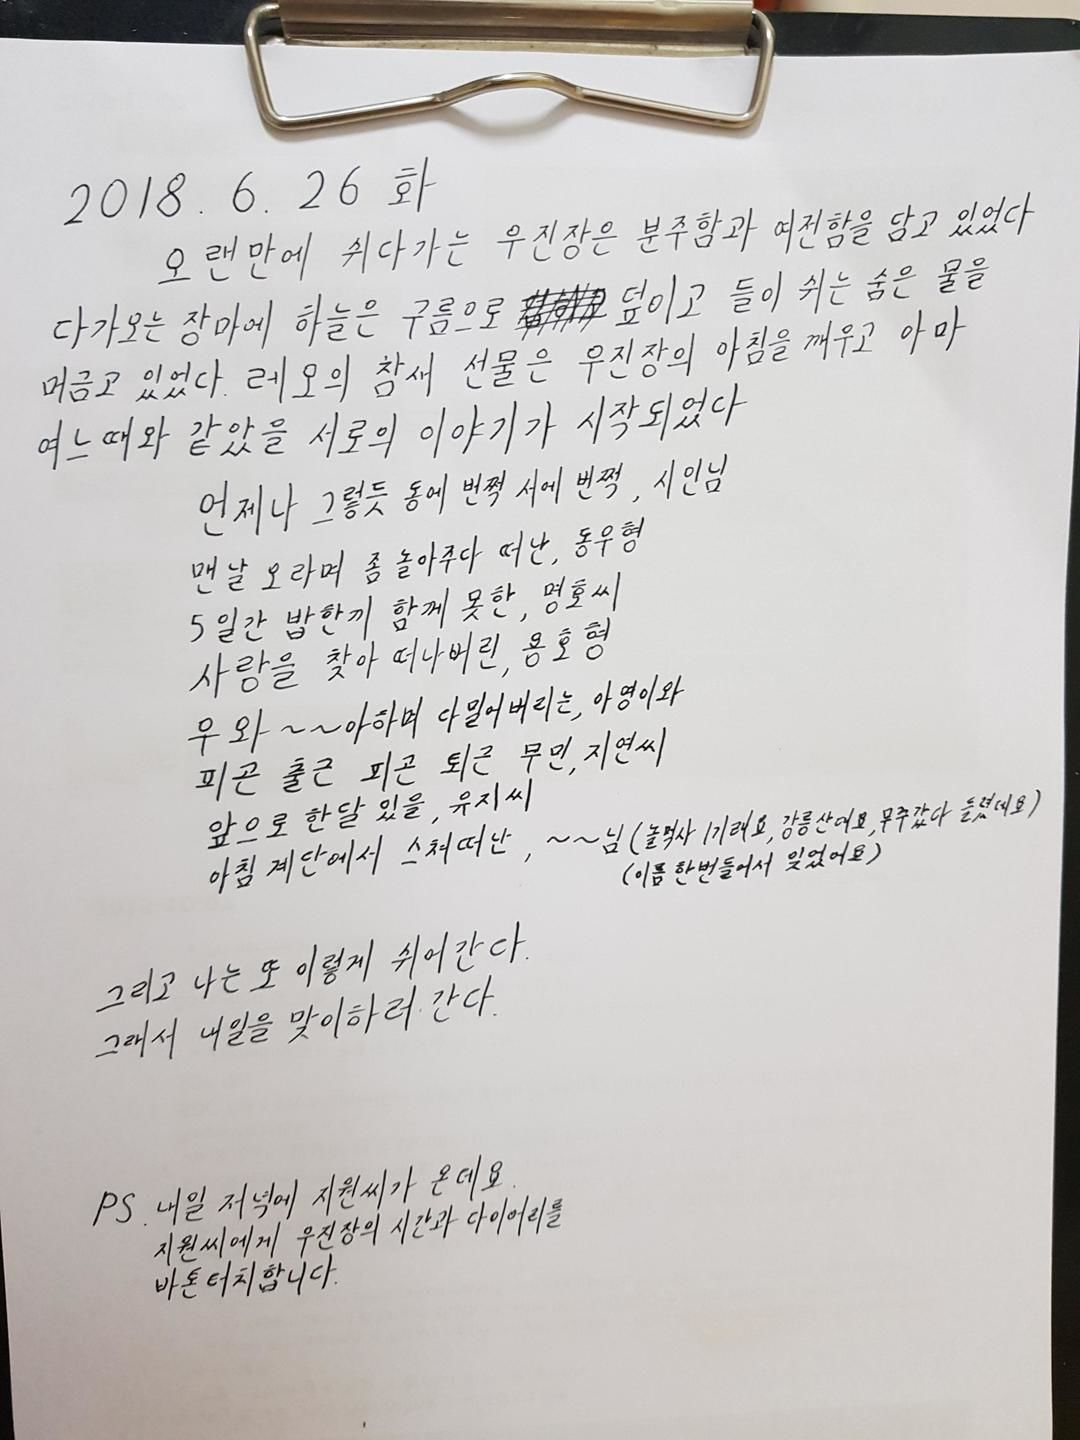 2018. 6. 26 화
오랜만에 쉬다가는 우진장은 분주함과 여전함을 담고 있었다
다가오는 장마에 하늘은 구름으로 덮이고 들이 쉬는 숨은 물을
머금고 있었다. 레오의 참새 선물은 우진장의 아침을 깨우고 아마
여느때와 같았을 서로의 이야기가 시작되었다
언제나 그렇듯 동에 번쩍 서에 번쩍, 시인님
맨날 오라며 좀 놀아주다 떠난, 동우형
5일간 밥한끼 함께 못한, 명호씨
사랑을 찾아 떠나버린, 용호형
우와~~아하며 다밀어버리는, 아영이와
피곤 출근 피곤 퇴근 무민, 지연씨
앞으로 한달 있을, 유지씨
아침 계단에서 스쳐떠난, ~~님 (놀먹사 1기래요, 강릉산데요, 무주갔다 들렸데요)
(이름 한번들어서 잊었어요)
그리고 나는 또 이렇게 쉬어간다.
그래서 내일을 맞이하러 간다.
PS. 내일 저녁에 지원씨가 온데요.
지원씨에게 우진장의 시간과 다이어리를
바톤터치합니다.